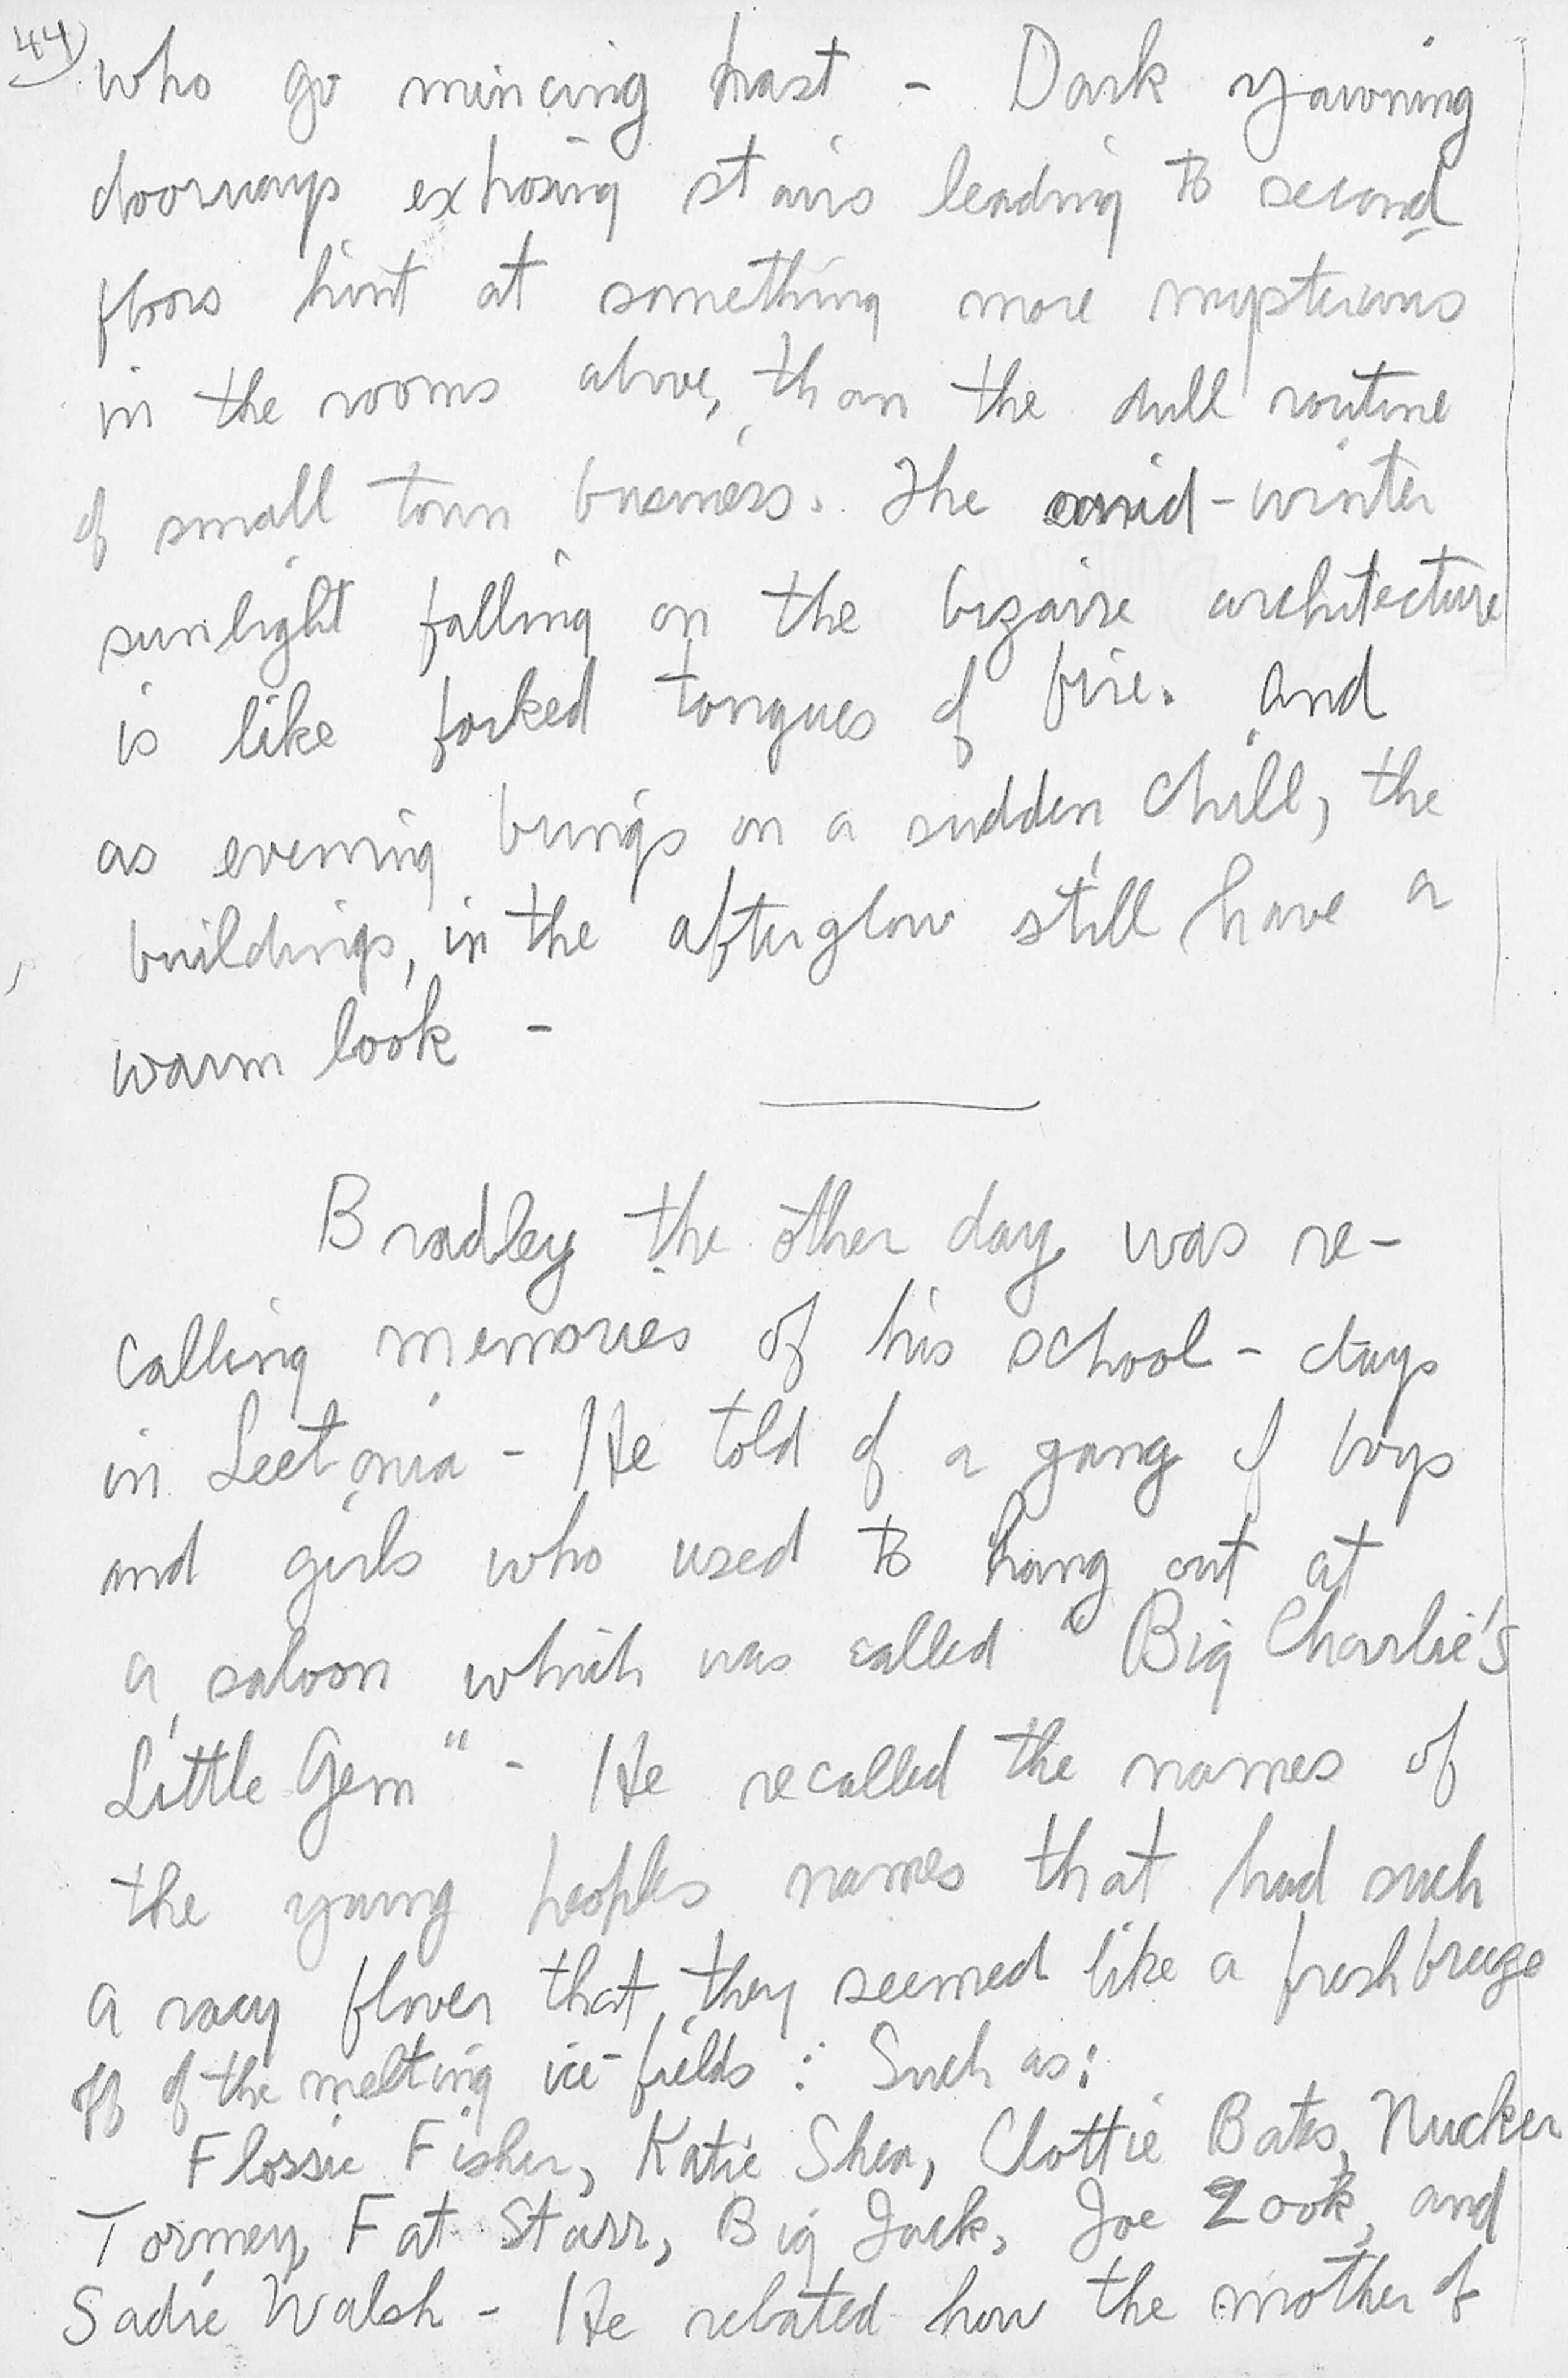 44
who go mincing past - Dark yawning
doorways exposing stairs leading to second
floors hint at something more mysterious
in the rooms above, than the dull routine
of small town business. The mid-winter
sunlight falling on the bizarre architecture
is like forked tongues of fire. and
as evening brings on a sudden chill, the
buildings, in the afterglow still have a
warm look -
Bradley the other day was re-
calling memories of his school-days
in Leetonia - He told of a gang of boys
and girls who used to hang out at
a saloon which was called "Big Charlie's
Little Gem" - He recalled the names of
the young peoples names that had such
a racy flavor that they seemed like a fresh breeze
off of the melting ice-fields : Such as:
Flossie Fisher, Katie Shea, Clottie Bates, Nucker
Tormey, Fat Starr, Big Jack, Joe Zook, and
Sadie Walsh - He related how the mother of